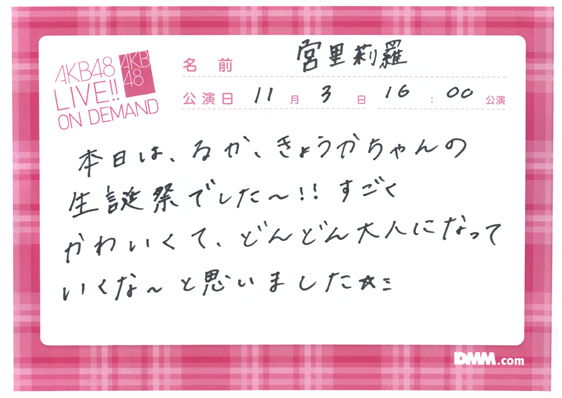 AKB48
LIVE!!
ON DEMAND
AKB
48
名前 宮里莉羅
公演日 11月3日 16:00公演
本日は、なか、きょうかちゃんの
生誕祭でした〜!! すごく
かわいくて、どんどん大人になって
いくな〜と思いました☆ミ
DMM.com